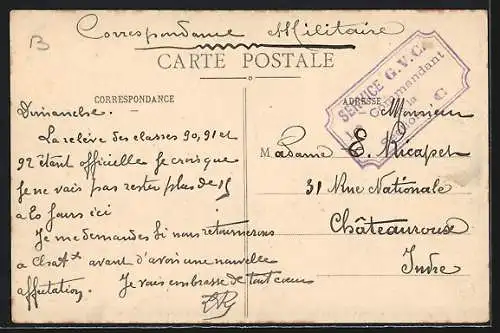 B
Correspondance Militaire
CARTE POSTALE
SERVICE G.V.C.
Commandant
la
C
CORRESPONDANCE
ADRESSE
Dimanche.
La relève des classes 90, 91 et
92 étant officielle je crois que
je ne vais pas rester plus de 15
à 20 jours ici
Je me demande si nous retournerons
a Chatx avant d'avoir une nouvelle
affectation. Je vais embrasse de tout coeur
Monsieur
Madame E. Ricapet
31 Rue Nationale
Châteauroux
Indre